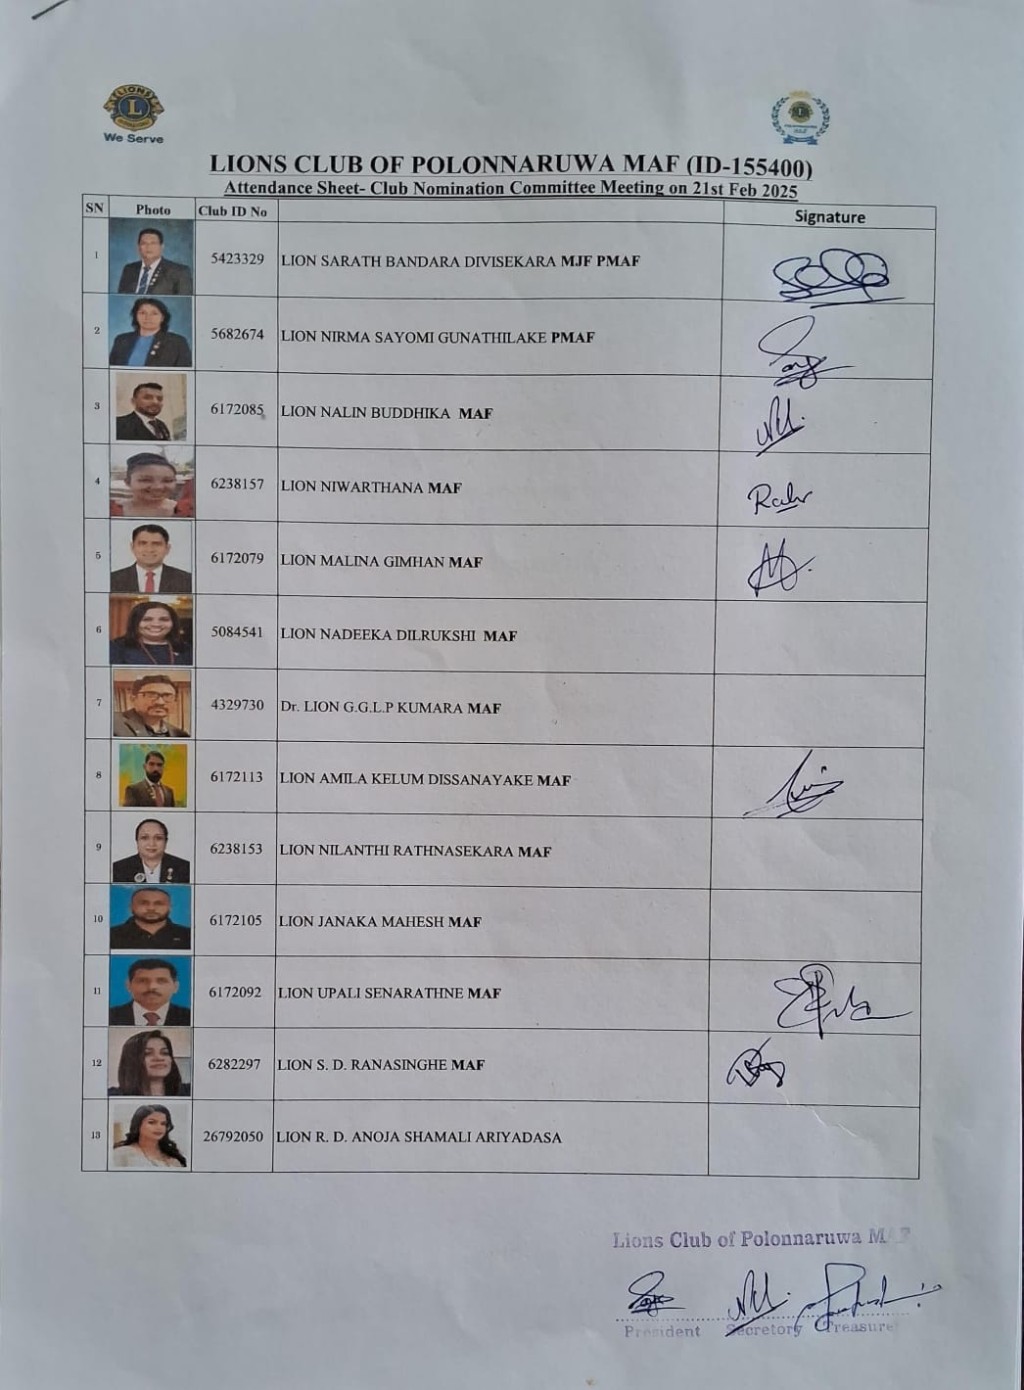 LIONS
L
INTERNATIONAL
We Serve
LIONS CLUB OF POLONNARUWA MAF (ID-155400)
Attendance Sheet- Club Nomination Committee Meeting on 21st Feb 2025
SN Photo Club ID No Signature
1 5423329 LION SARATH BANDARA DIVISEKARA MJF PMAF
2 5682674 LION NIRMA SAYOMI GUNATHILAKE PMAF
3 6172085 LION NALIN BUDDHIKA MAF
4 6238157 LION NIWARTHANA MAF
5 6172079 LION MALINA GIMHAN MAF
6 5084541 LION NADEEKA DILRUKSHI MAF
7 4329730 Dr. LION G.G.L.P KUMARA MAF
8 6172113 LION AMILA KELUM DISSANAYAKE MAF
9 6238153 LION NILANTHI RATHNASEKARA MAF
10 6172105 LION JANAKA MAHESH MAF
11 6172092 LION UPALI SENARATHNE MAF
12 6282297 LION S. D. RANASINGHE MAF
13 26792050 LION R. D. ANOJA SHAMALI ARIYADASA
Lions Club of Polonnaruwa MAF
President Secretory Treasurer